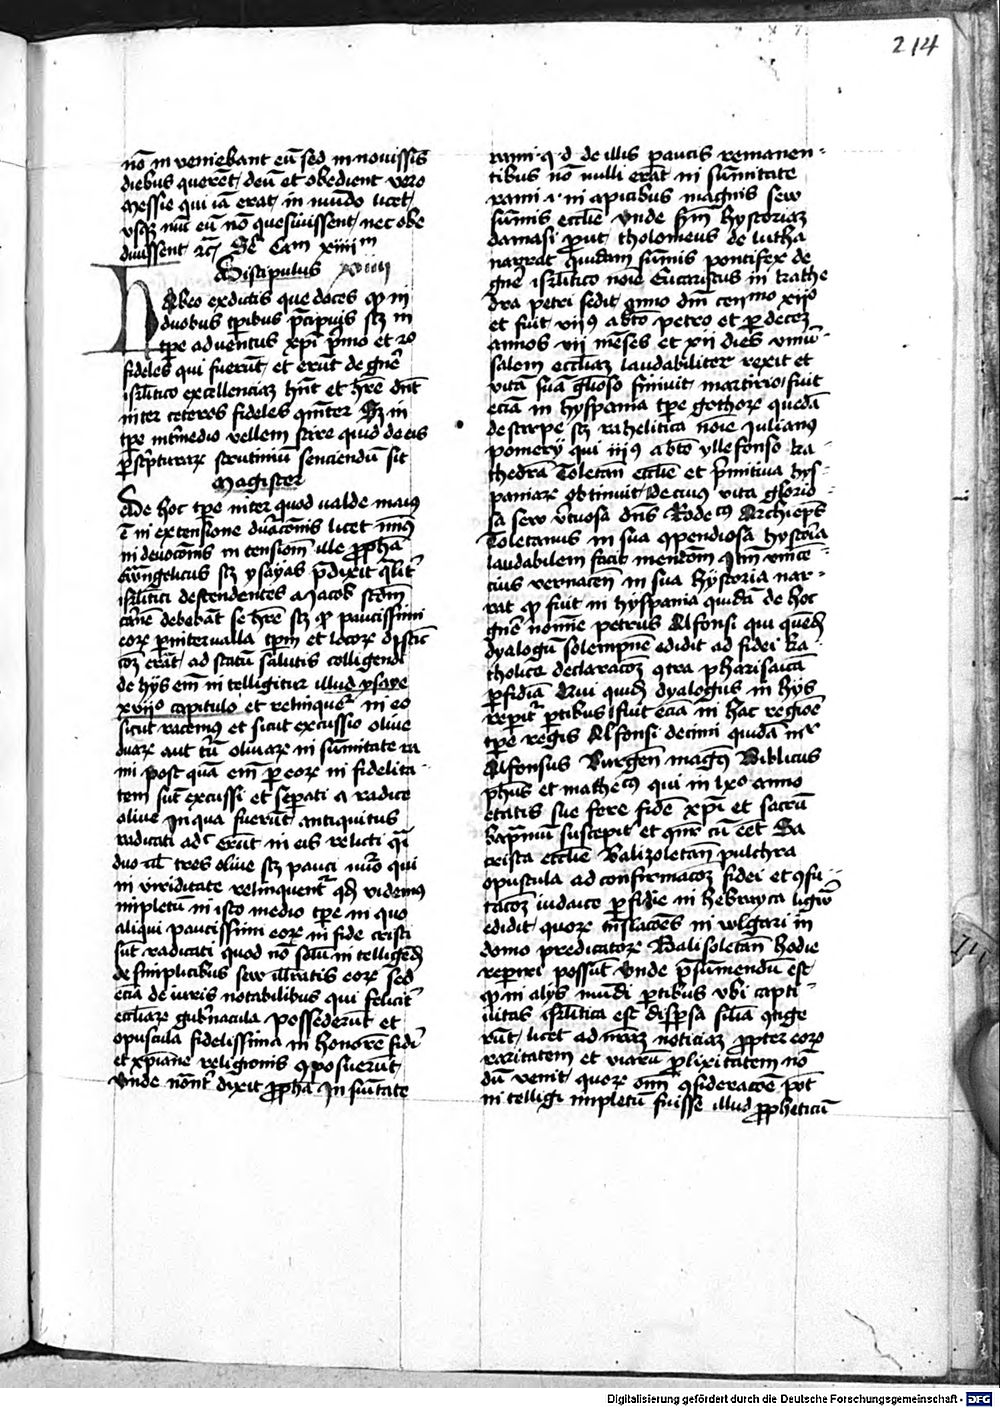 214
nō in veniebant eū sed in nouissis
diebus querēt deū et obedient vero
Messie qui iā erat in mundo licet
vsqz nūc eū nō quesiuissent nec obe
diuissent ꝛcͣ Sc̄ Cam xiiiiᵐ
Discipulus xviiii
HAbeo ex dictis que doces qꝫ in
duobus tp̄ibus p̄cipuis scz in
tp̄e aduentus xp̄i p̄mo et 2o
fideles qui fuerūt et erūt de gn̄e
isrl̄itico excellenciaz hn̄t et hr̄e dn̄t
inter ceteros fideles Sz in
tp̄e int̄medio vellem scire quid de eis
ꝑ scͥpturarꝫ scrutiniū senciendū sit
Magister
De hoc tp̄e inter quod valde maiꝰ
ē in extensione dūracōnis licet minꝰ
in deuocōnis in tensiōm ille ꝓph̄a
ewāngelicus scz ysayas p̄dixit qͣlit̄
isrl̄itici descendentes a Jacob scd̄m
carnē debebāt se hr̄e scz qꝫ paucissimi
eorꝫ ꝑ interualla tp̄m et locorꝫ distīc
toꝫ erāt ad statū salutis colligendi
de hys em̄ in telligitur illud ysaye
xviiᵒ capitulo et relinquet̄ in eo
sicut racemꝰ et sicut excussio oliue
duarꝫ aut triū oliuarꝫ in sūmitate ra
mi post quā em̄ ꝑ eorꝫ in fidelita
tem sūt excussi et seꝑati a radice
oliue in qua fuerūt antiquitus
radicati adᶜ erūt in eis relicti qͣi
duo ul̄ tres oliue scz pauci nūo qui
in viriditate relinquent̄ qd̄ videmꝰ
impletū in isto medio tp̄e in quo
aliqui paucissimi eorꝫ in fide cristi
sūt radicati quod nō solū in telligēd̄
de simplicibus sew illr̄atis eorꝫ Sed
eciā de iuris notabilibus qui felicit̄
eccl̄iarꝫ gub̄nacula possederūt et
opuscula fidelissima in honorē fidi
et xp̄iane religionis ꝯposuerūt
Vnde nōnt̄ dixit ꝓph̄a In sūitate
rami·q·d· de illis paucis remanen
tibus nō nulli erāt in sūmitate
rami ·i· in apicibus magnis sew
sūmis eccl̄ie vnde scd̄m hystoriaz
damasi put tholomeus de lutha
narrat quidam sūmis pontifex de
gn̄e isrl̄itico noīe Eucaristus in kathe
dra petri sedit anno dn̄i cenᵐᵒ xijᵒ
et fuit viꝰ ab petro et ꝑ decez
annos vii mēses et xii dies vniū
salem eccl̄iaz laudabiliter rexit et
vitā suā gl̄ioso finiuit martirio fuit
eciā in hyspania tp̄e gothorꝫ quedā
de stirpe scz rahelitica noīe Julianꝰ
pomerij qui iiijꝰ ab yllefonso ka
thedra Toletan̄ eccl̄ie et p̄mitiua hys
paniarꝫ obtinuit De cuiꝰ vita glorio
sa sew v̄tuosa dn̄s Rodecᵘˢ Archiep̄s
Toletanus in sua ꝯpendiosa hystoria
laudabilem facit mencōm qm̄ vince
cius vernacen̄ in sua hystoria nar
rat qꝫ fuit in hyspania quidā de hoc
gn̄e nomīe petrus Alfonsi qui quend̄
dyalogū solempnē edidit ad fidei ka
tholice declaracōꝫ ꝯtra pharisaicā
ꝑfidiā Qui quid̄ dyalogus in hijs
repit̄ ꝑtibus fuit eciā in hac regiōe
tp̄e regis Alfonsi decimi quidā mr̄
Alfonsus Burgen̄ magnꝰ Biblicus
ph̄us et mathecᵘˢ qui in lxᵒ anno
etatis sue fere fidē xp̄i et sacrū
bap̄mū suscepit et qn̄r cū eēt Sa
crista eccl̄ie Valizoletan̄ pulchra
opuscula ad confirmacōꝫ fidei et ꝯfu
tacōꝫ iudaice ꝑfidie in hebrayca ligw̄
edidit quorꝫ trn̄slacōes in wlgari in
domo predicatorꝫ Valisoletan̄ hodie
reperiri possūt Vnde p̄sūmendū est
qꝫ in alys mundi ꝑtibus vbi capti
uitas isrl̄itica est disp̄sa silia ꝯtige
rūt licet ad nr̄aꝫ noticiaꝫ ꝓpter eorꝫ
raritatem et viarū ꝓlixitatem nō
dū venit quorꝫ om̄i ꝯsideracōe pōt
in telligi impletū fuisse illud ꝓpheticū
Digitalisierung gefördert durch die Deutsche Forschungsgemeinschaft - DFG